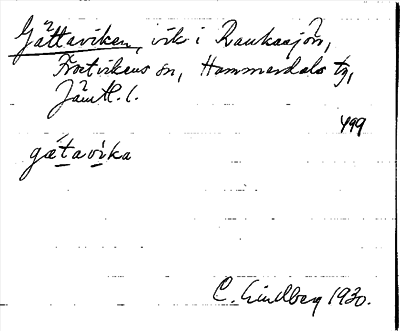 Gåttaviken, vik i Rankaajön,
Frostvikens sn, Hammerdals tg,
Jämtl. l.
499
gåtavika
C. Lindberg 1930.